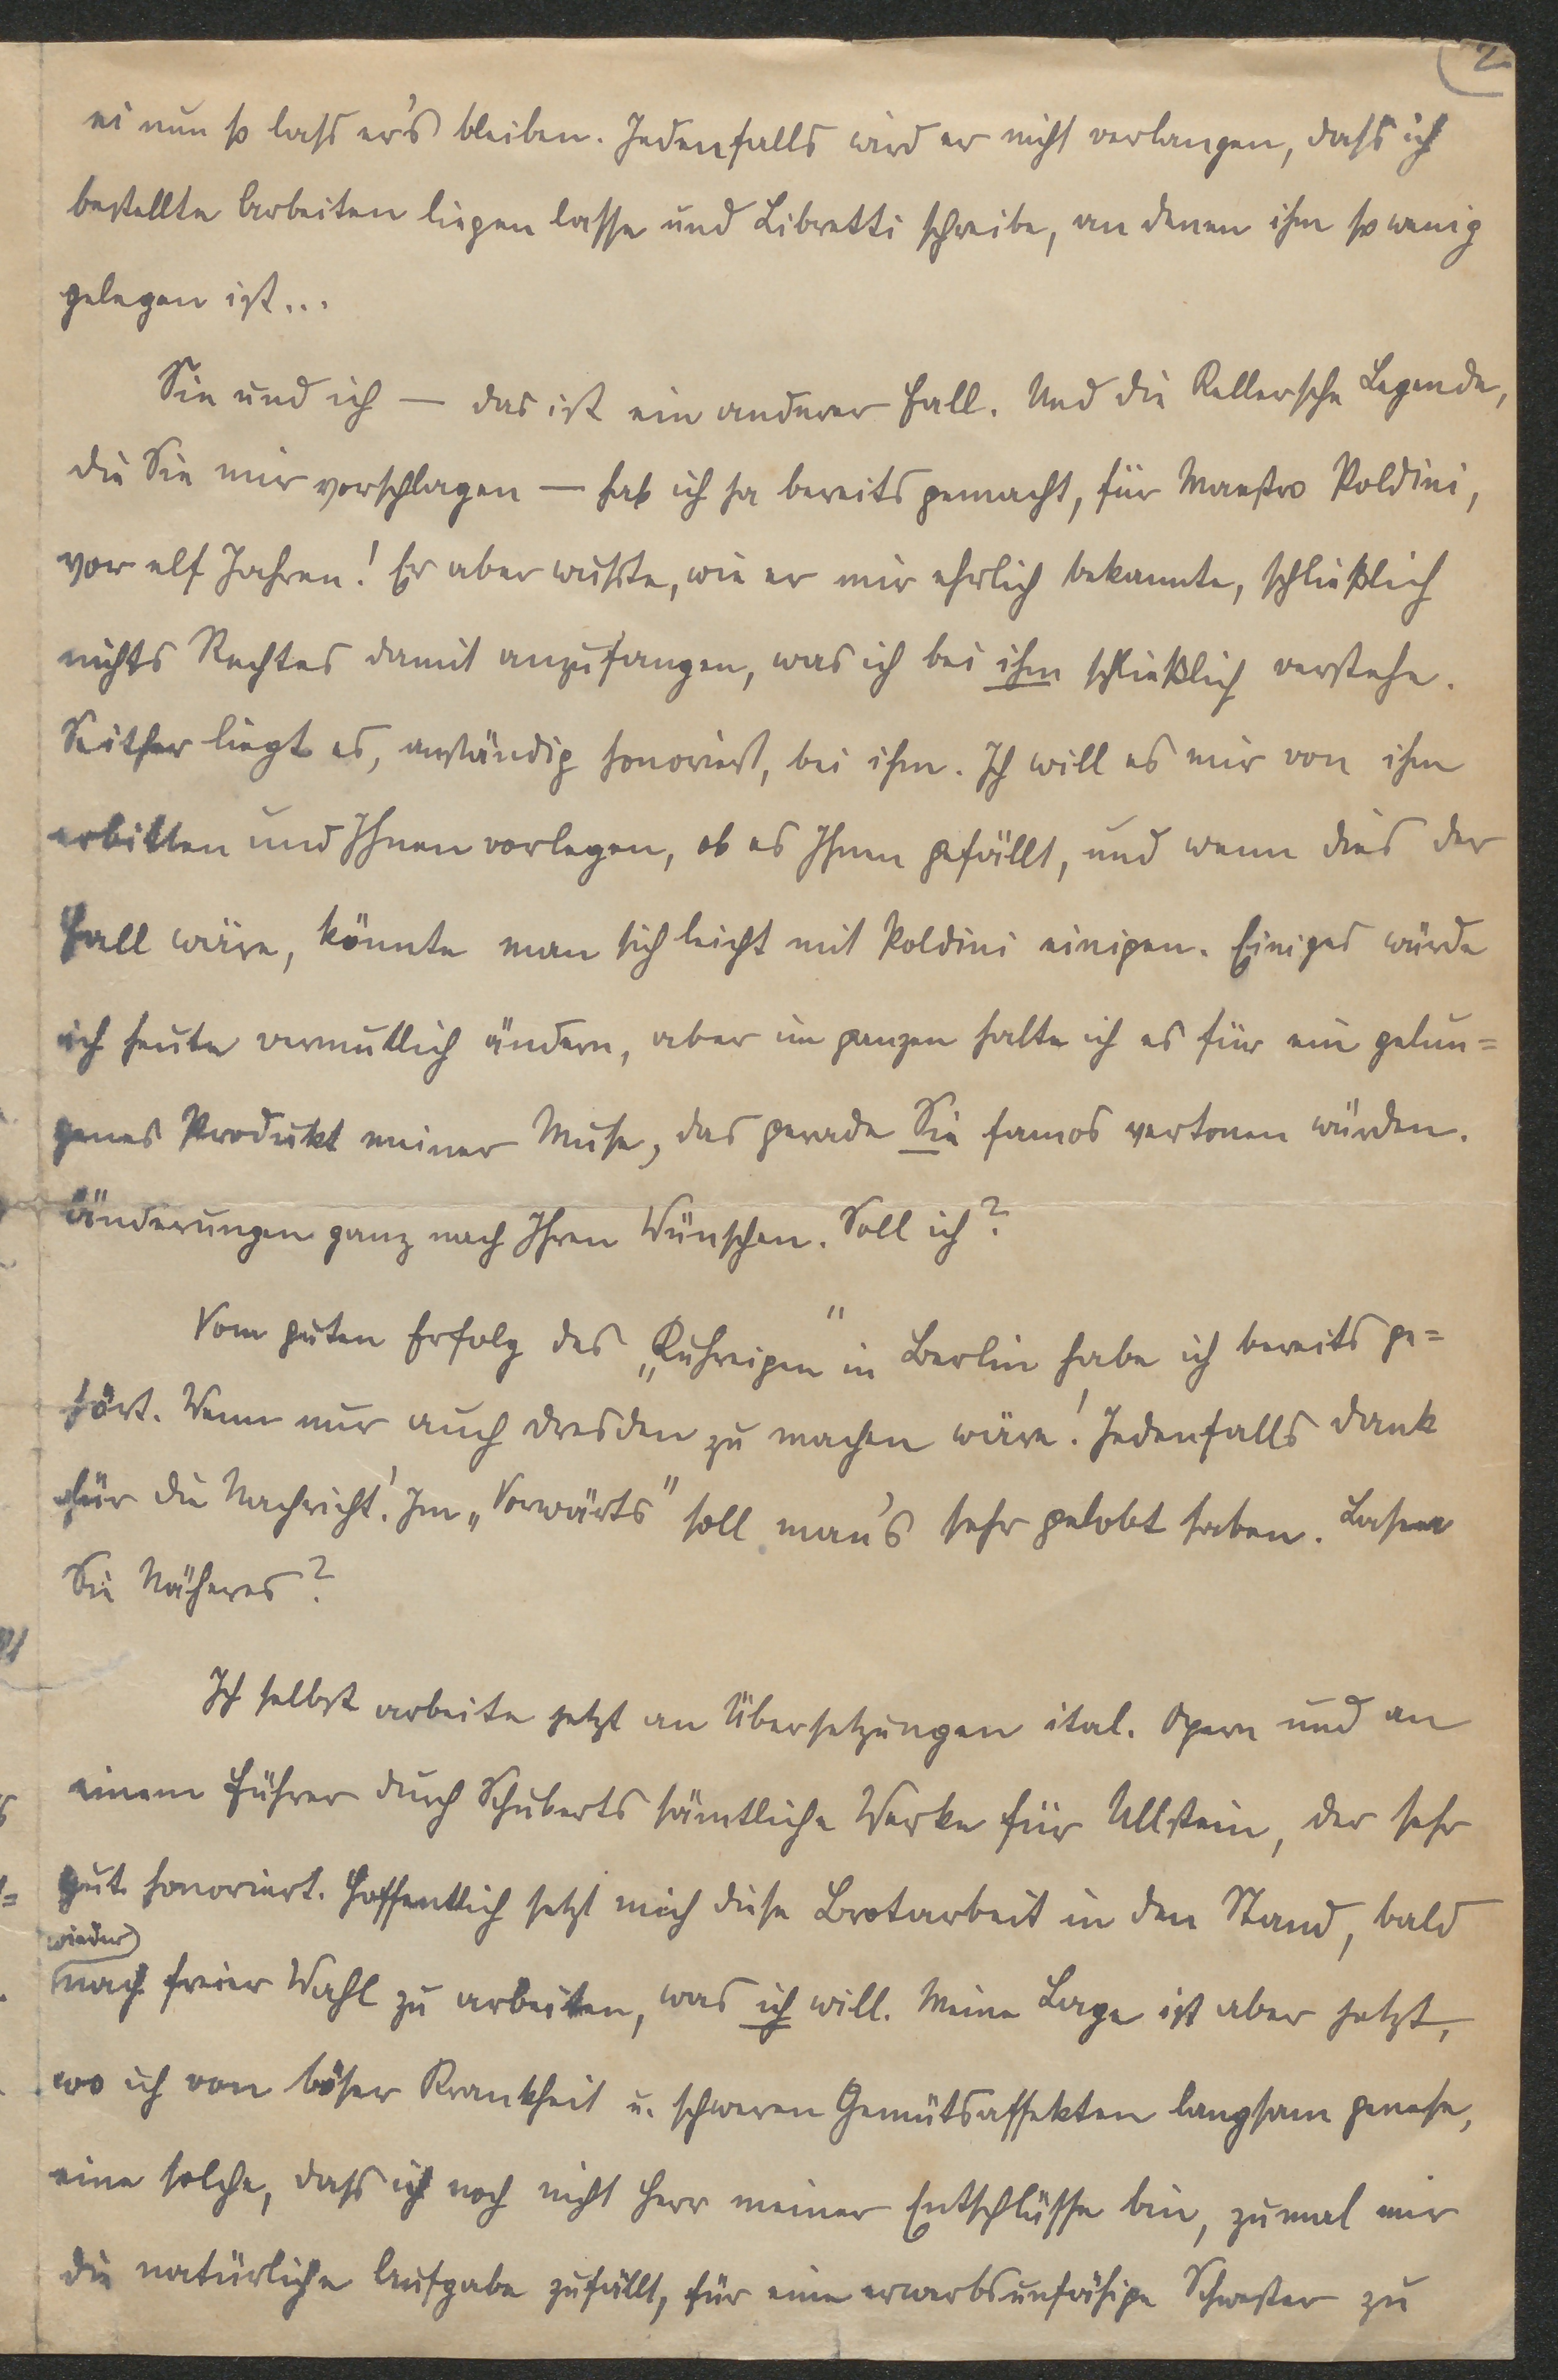 2.
ei nun so lass er's bleiben. Jedenfalls wird er nicht verlangen, dass ich
bestellte Arbeiten liegen lasse und Libretti schreibe, an denen ihm so wenig
gelegen ist...
Sie und ich — das ist ein anderer Fall. Und die Kellersche Legende,
die Sie mir vorschlagen — hab ich ja bereits gemacht, für Maestro Poldini,
vor elf Jahren! Er aber wusste, wie er mir ehrlich bekannte, schließlich
nichts Rechtes damit anzufangen, was ich bei ihm schließlich verstehe.
Seither liegt es, anständig honoriert, bei ihm. Ich will es mir von ihm
erbitten und Ihnen vorlegen, ob es Ihnen gefällt, und wenn dies der
Fall wäre, könnte man sich leicht mit Poldini einigen. Einiges würde
ich heute vermutlich ändern, aber im ganzen halte ich es für ein gelun=
genes Produkt meiner Muse, das gerade Sie famos vertonen würden.
Änderungen ganz nach Ihren Wünschen. Soll ich?
Vom guten Erfolg des „Kuhreigen" in Berlin habe ich bereits ge=
hört. Wenn nur auch Dresden zu machen wäre! Jedenfalls Dank
für die Nachricht! Im „Vorwärts" soll man's sehr gelobt haben. Lasen
Sie Näheres?
Ich selbst arbeite jetzt an Übersetzungen ital. Opern und an
einem Führer durch Schuberts sämtliche Werke für Ullstein, der sehr
gut honoriert. Hoffentlich setzt mich diese Brotarbeit in den Stand, bald
wieder
nach freier Wahl zu arbeiten, was ich will. Meine Lage ist aber jetzt,
wo ich von böser Krankheit u. schweren Gemütsaffekten langsam genese,
eine solche, dass ich noch nicht Herr meiner Entschlüsse bin, zumal mir
die natürliche Aufgabe zufällt, für eine erwerbsunfähige Schwester zu